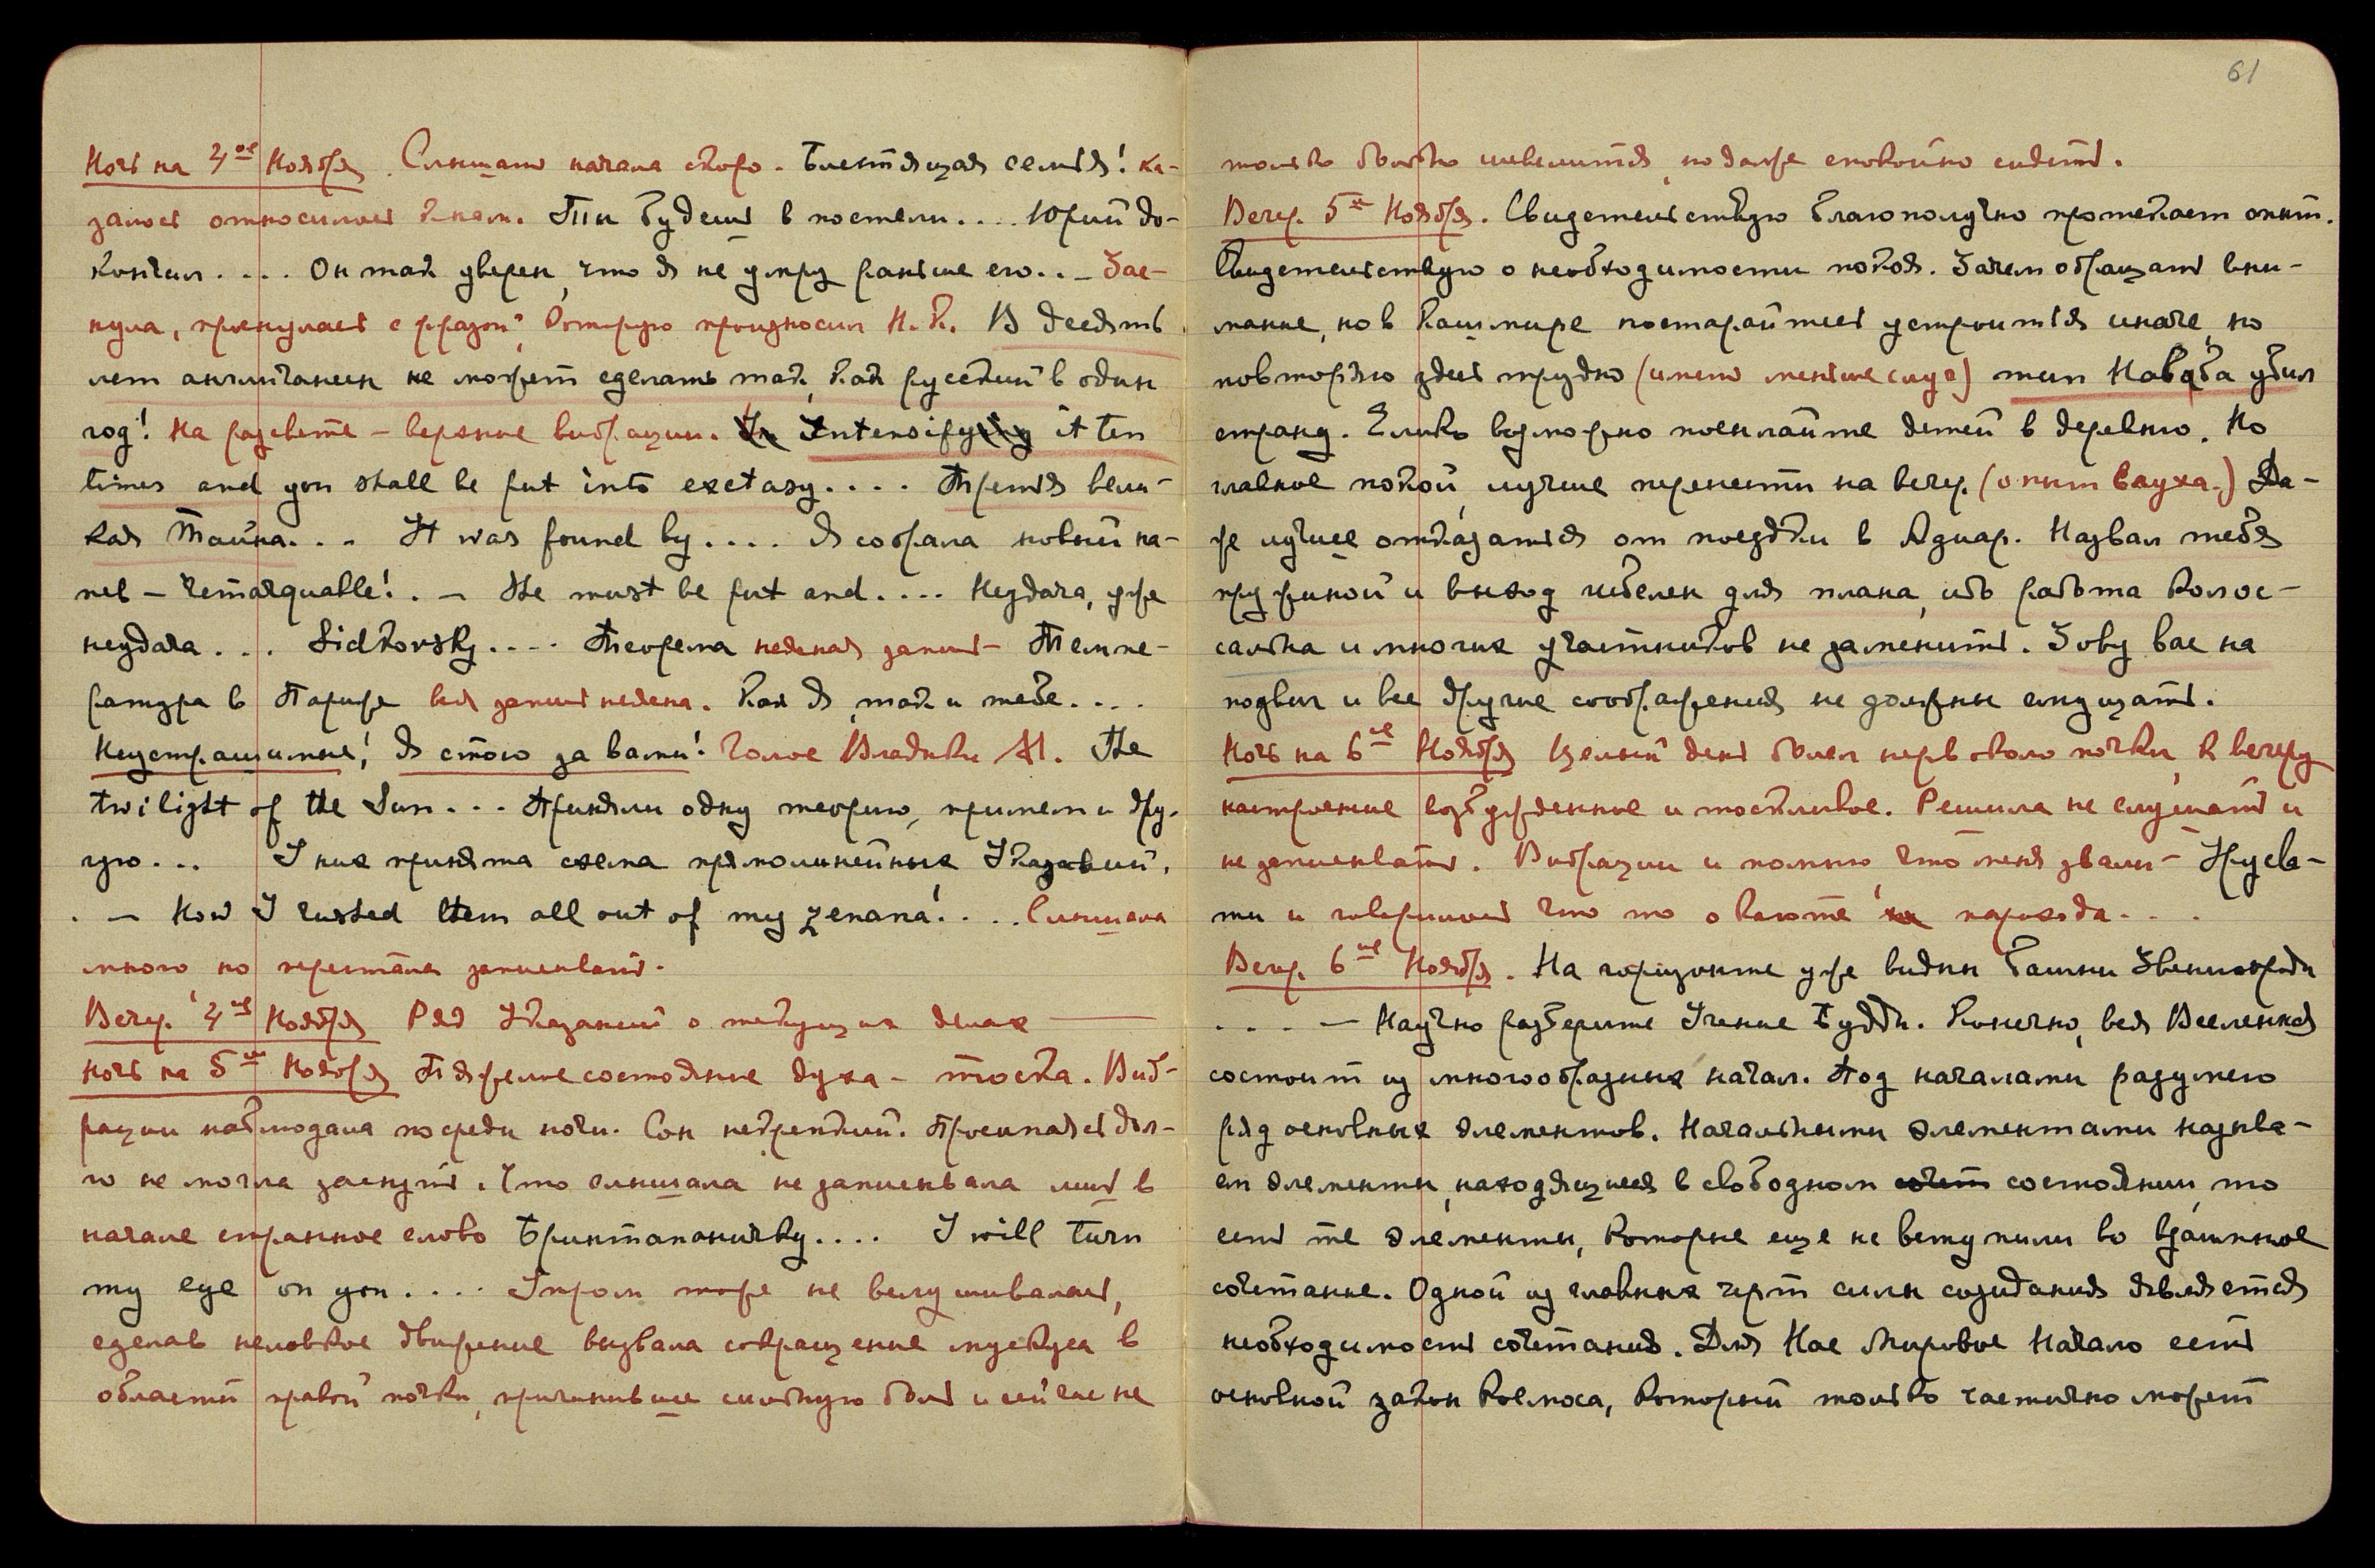 61
Ночь на 4ое Ноября. Слышать начала скоро. Блестящая семья! Ка-
залось относилось к нам. Ты будешь в постели.... Юрий до-
кончил.... Он так уверен, что я не умру раньше его... Зас-
нула, проснулась с фразой, которую произносил Н.К. В десять
лет англичанин не может сделать так, как русский в один
год! На рассвете – верхние вибрации. Intensify it ten
times and you shall be put into exctasy.... Третья вели-
кая Тайна... It was found by.... Я собрала новый на-
пев – remarquable!.. – He must be put and.... Неудача, уже
неудача... Sidkovsky.... Теорема неясная запись – Темпе-
ратура в Париже вся запись неясна. Как я, так и тебе....
Неустрашимые! Я стою за вами! Голос Владыки М. The
twilight of the Sun... Приняли одну теорию, примем и дру-
гую... У них принята схема прямолинейных Указаний.
. – How I rusted them all out of my zenana!.... Слышала
много но перестала записывать.
Вечер. 4ое Ноября Ряд Указаний о текущих делах ———
Ночь на 5ое Ноября Тяжелое состояние духа – тоска. Виб-
рации наблюдала посреди ночи. Сон некрепкий. Проснулась дол-
го не могла заснуть. Что слышала не записывала лишь в
начале странное слово Бринтапаничку.... I will turn
my eye on you.... Утром тоже не вслушивалась,
сделав неловкое движение вызвала сокращение мускула в
области правой почки, причинившее сильную боль и сейчас не
только больно шевелиться, но даже спокойно сидеть.
Вечер. 5ое Ноября. Свидетельствую благополучно протекает опыт.
Свидетельствую о необходимости покоя. Зачем обращать вни-
мание, но в Кашмире постарайтесь устроиться иначе, но
повторяю здесь трудно (имею меньше слуг) тип Наваба убил
страну. Елико возможно посылайте детей в деревню. Но
главное покой, лучше перенести на вечер. (опыт вкуха.) Да-
же лучше отказаться от поездки в Адиар. Назвал тебя
пружиной и выход гибелен для плана, ибо работа колос-
сальна и многих участников не заменить. Зову вас на
подвиг и все другие соображения не должны смущать.
Ночь на 6ое Ноября Целый день болел нерв около почки, к вечеру
настроение возбужденное и тоскливое. Решила не слушать и
не записывать. Вибрации и помню что меня звали – Урусва-
ти и говорилось что то о каюте парохода...
Вечер. 6ое Ноября. На горизонте уже видны башни Звенигорода
.... – Научно разберите Учение Будды. Конечно, вся Вселенная
состоит из многообразных начал. Под началами разумею
ряд основных элементов. Начальными элементами называ-
ем элементы, находящиеся в свободном состоянии, то
есть те элементы, которые еще не вступили во взаимное
сочетание. Одной из главных черт силы созидания является
необходимость сочетания. Для Нас Мировое Начало есть
основной закон Космоса, который только частично может